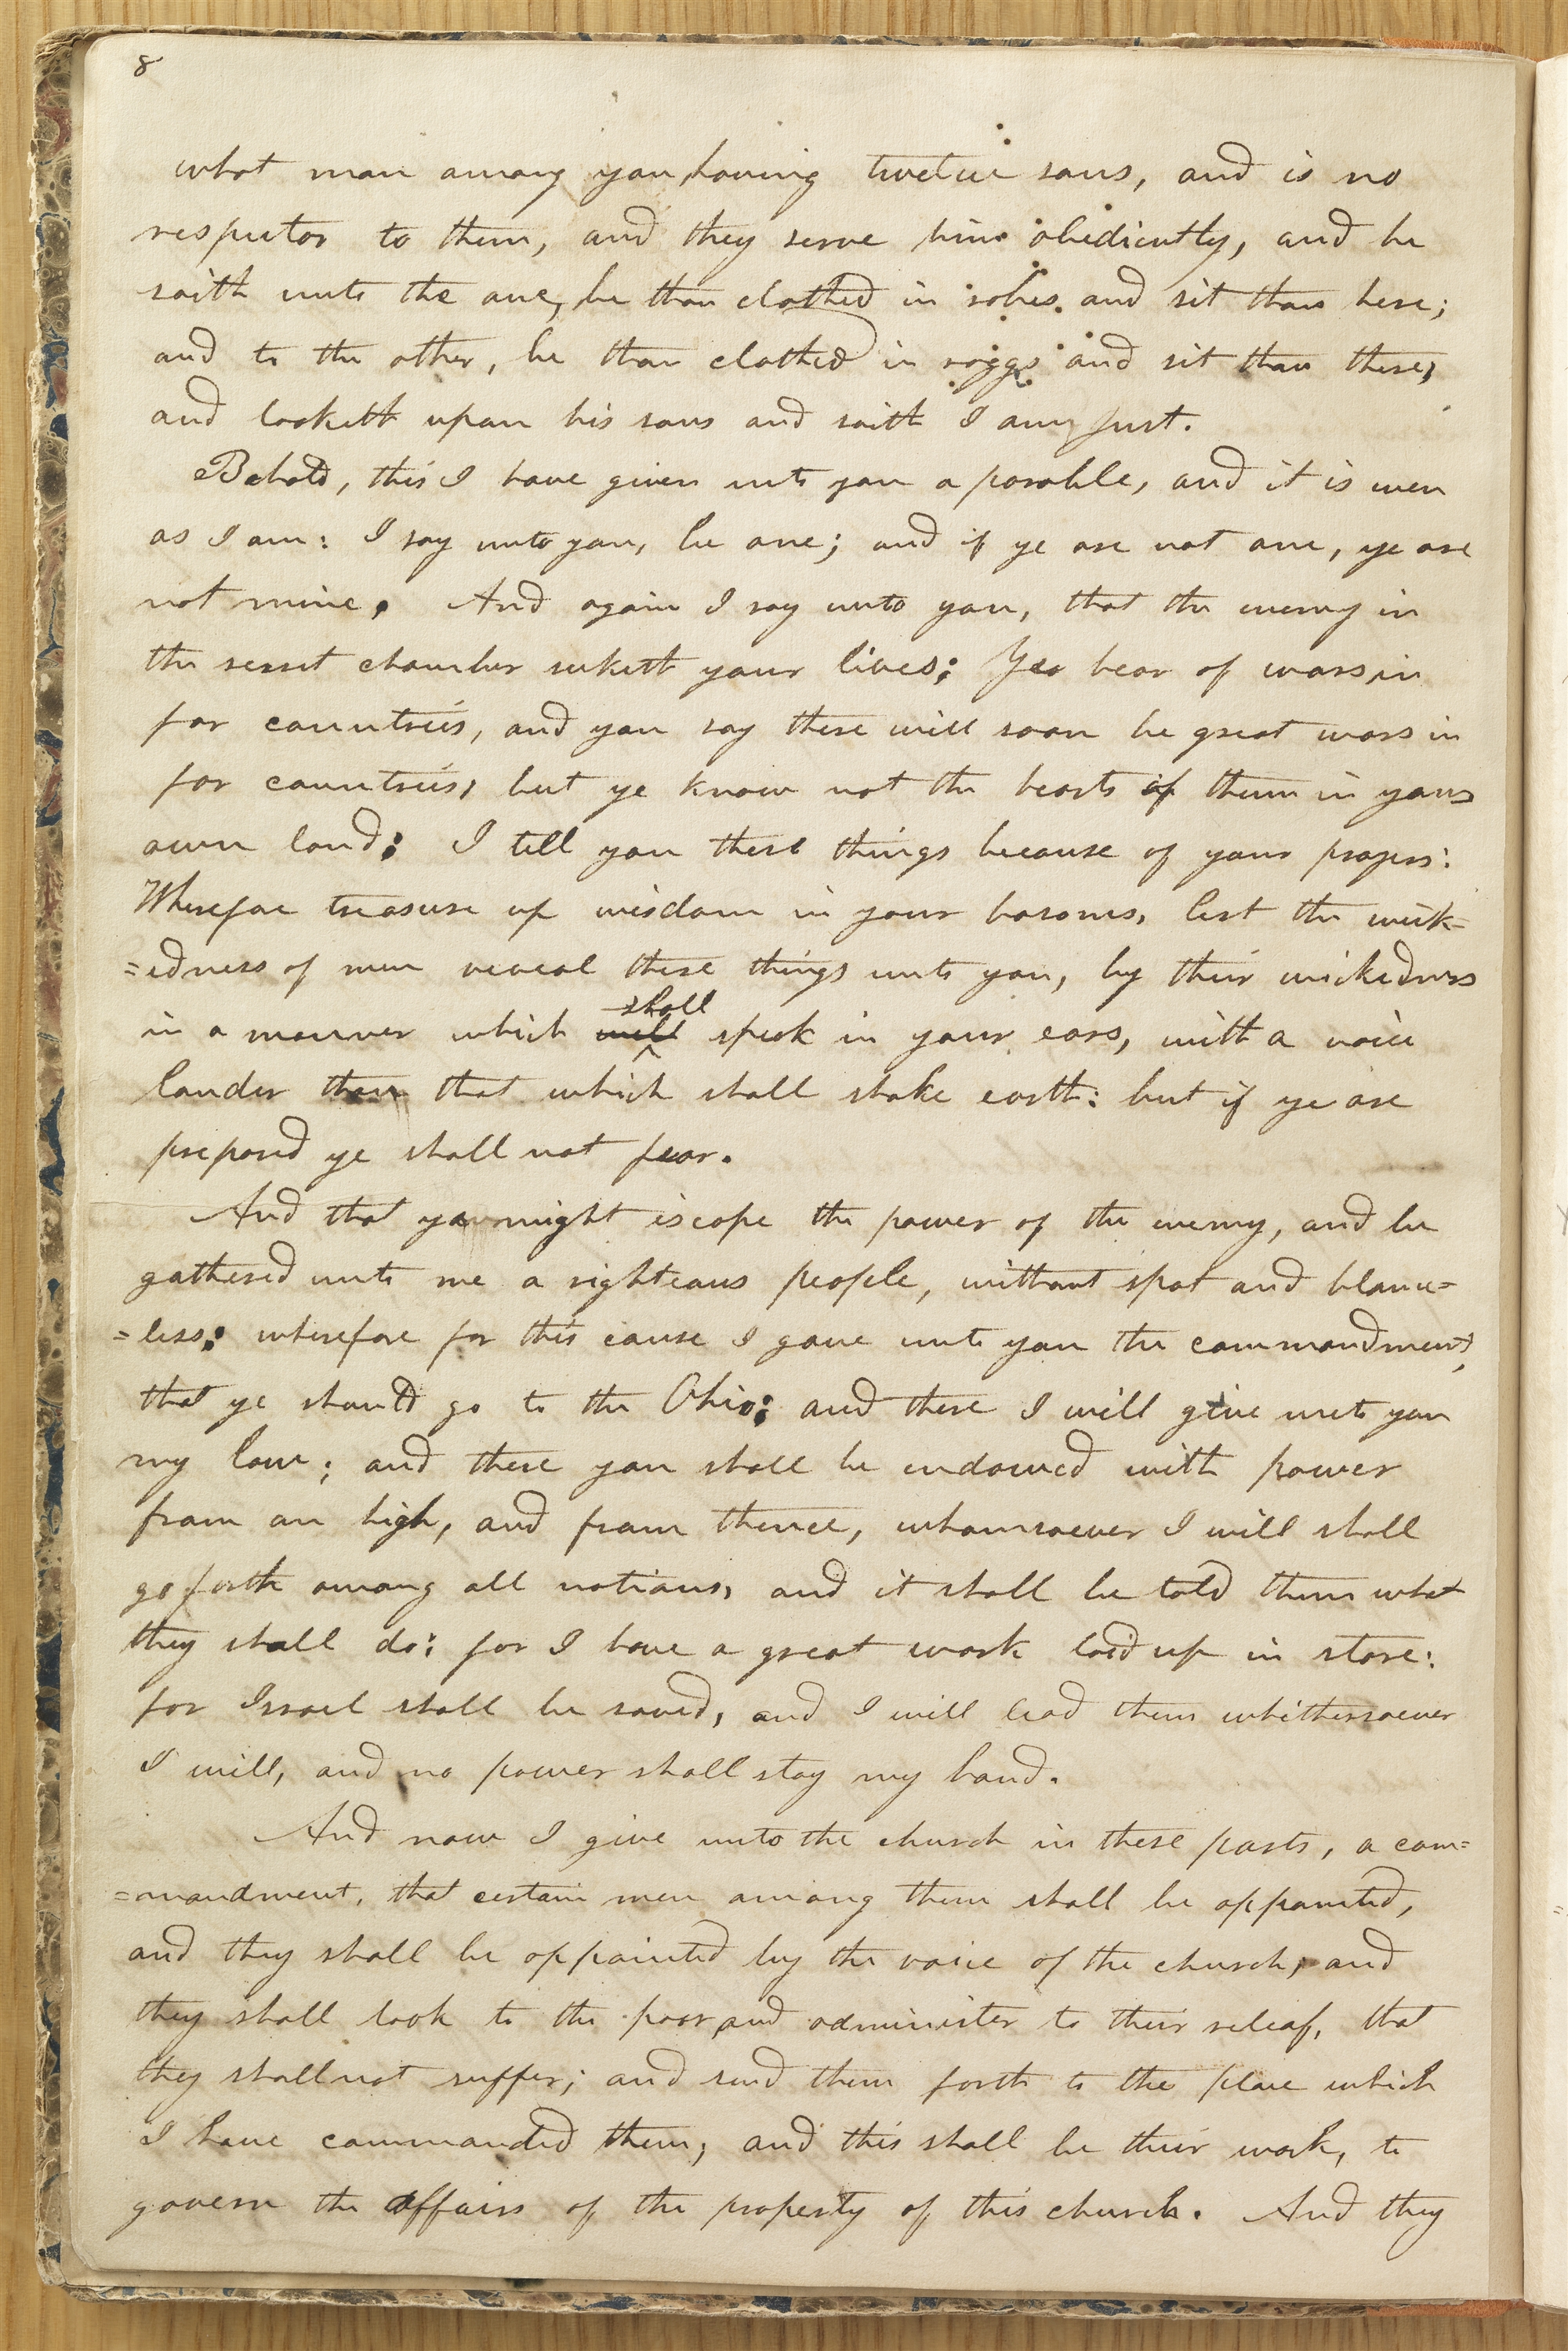 8
what man among you, having twelve sons, and is no
respector to them, and they serve him obediently, and he
saith unto the one, be thou clothed in robes and sit thou here;
and to the other, be thou clothed in raggs and sit thou there,
and looketh upon his sons and saith I am just.
Behold, this I have given unto you a parable, and it is even
as I am: I say unto you, be one; and if ye are not one, ye are
not mine. And again I say unto you, that the enemy in
the secret chamber seeketh your lives: Yea hear of wars, in
far countries, and you say there will soon be great wars in
far countries, but ye know not the hearts of them in your
own land: I tell you these things because of your prayers:
Wherefore treasure up wisdom in your bosoms, lest the wick=
=edness of men reveal these things unto you, by their wickedness
in a manner which will shall speak in your ears, with a voice
louder than that which shall shake earth: but if ye are
prepared ye shall not fear.
And that you might escape the power of the enemy, and be
gathered unto me a righteous people, without spot and blame=
=less: wherefore for this cause I gave unto you the commandment,
that ye should go to the Ohio; and there I will give unto you
my law; and there you shall be endowed with power
from on high, and from thence, whomsoever I will shall
go forth among all nations, and it shall be told them what
they shall do: for I have a great work laid up in store:
for Israel shall be saved, and I will lead them whithersoever
I will, and no power shall stay my hand.
And now I give unto the church in these parts, a com=
=mandment, that certain men among them shall be appointed,
and they shall be appointed by the voice of the church; and
they shall look to the poor, and administer to their releaf, that
they shall not suffer; and send them forth to the place which
I have commanded them; and this shall be their work, to
govern the affairs of the property of this church. And they